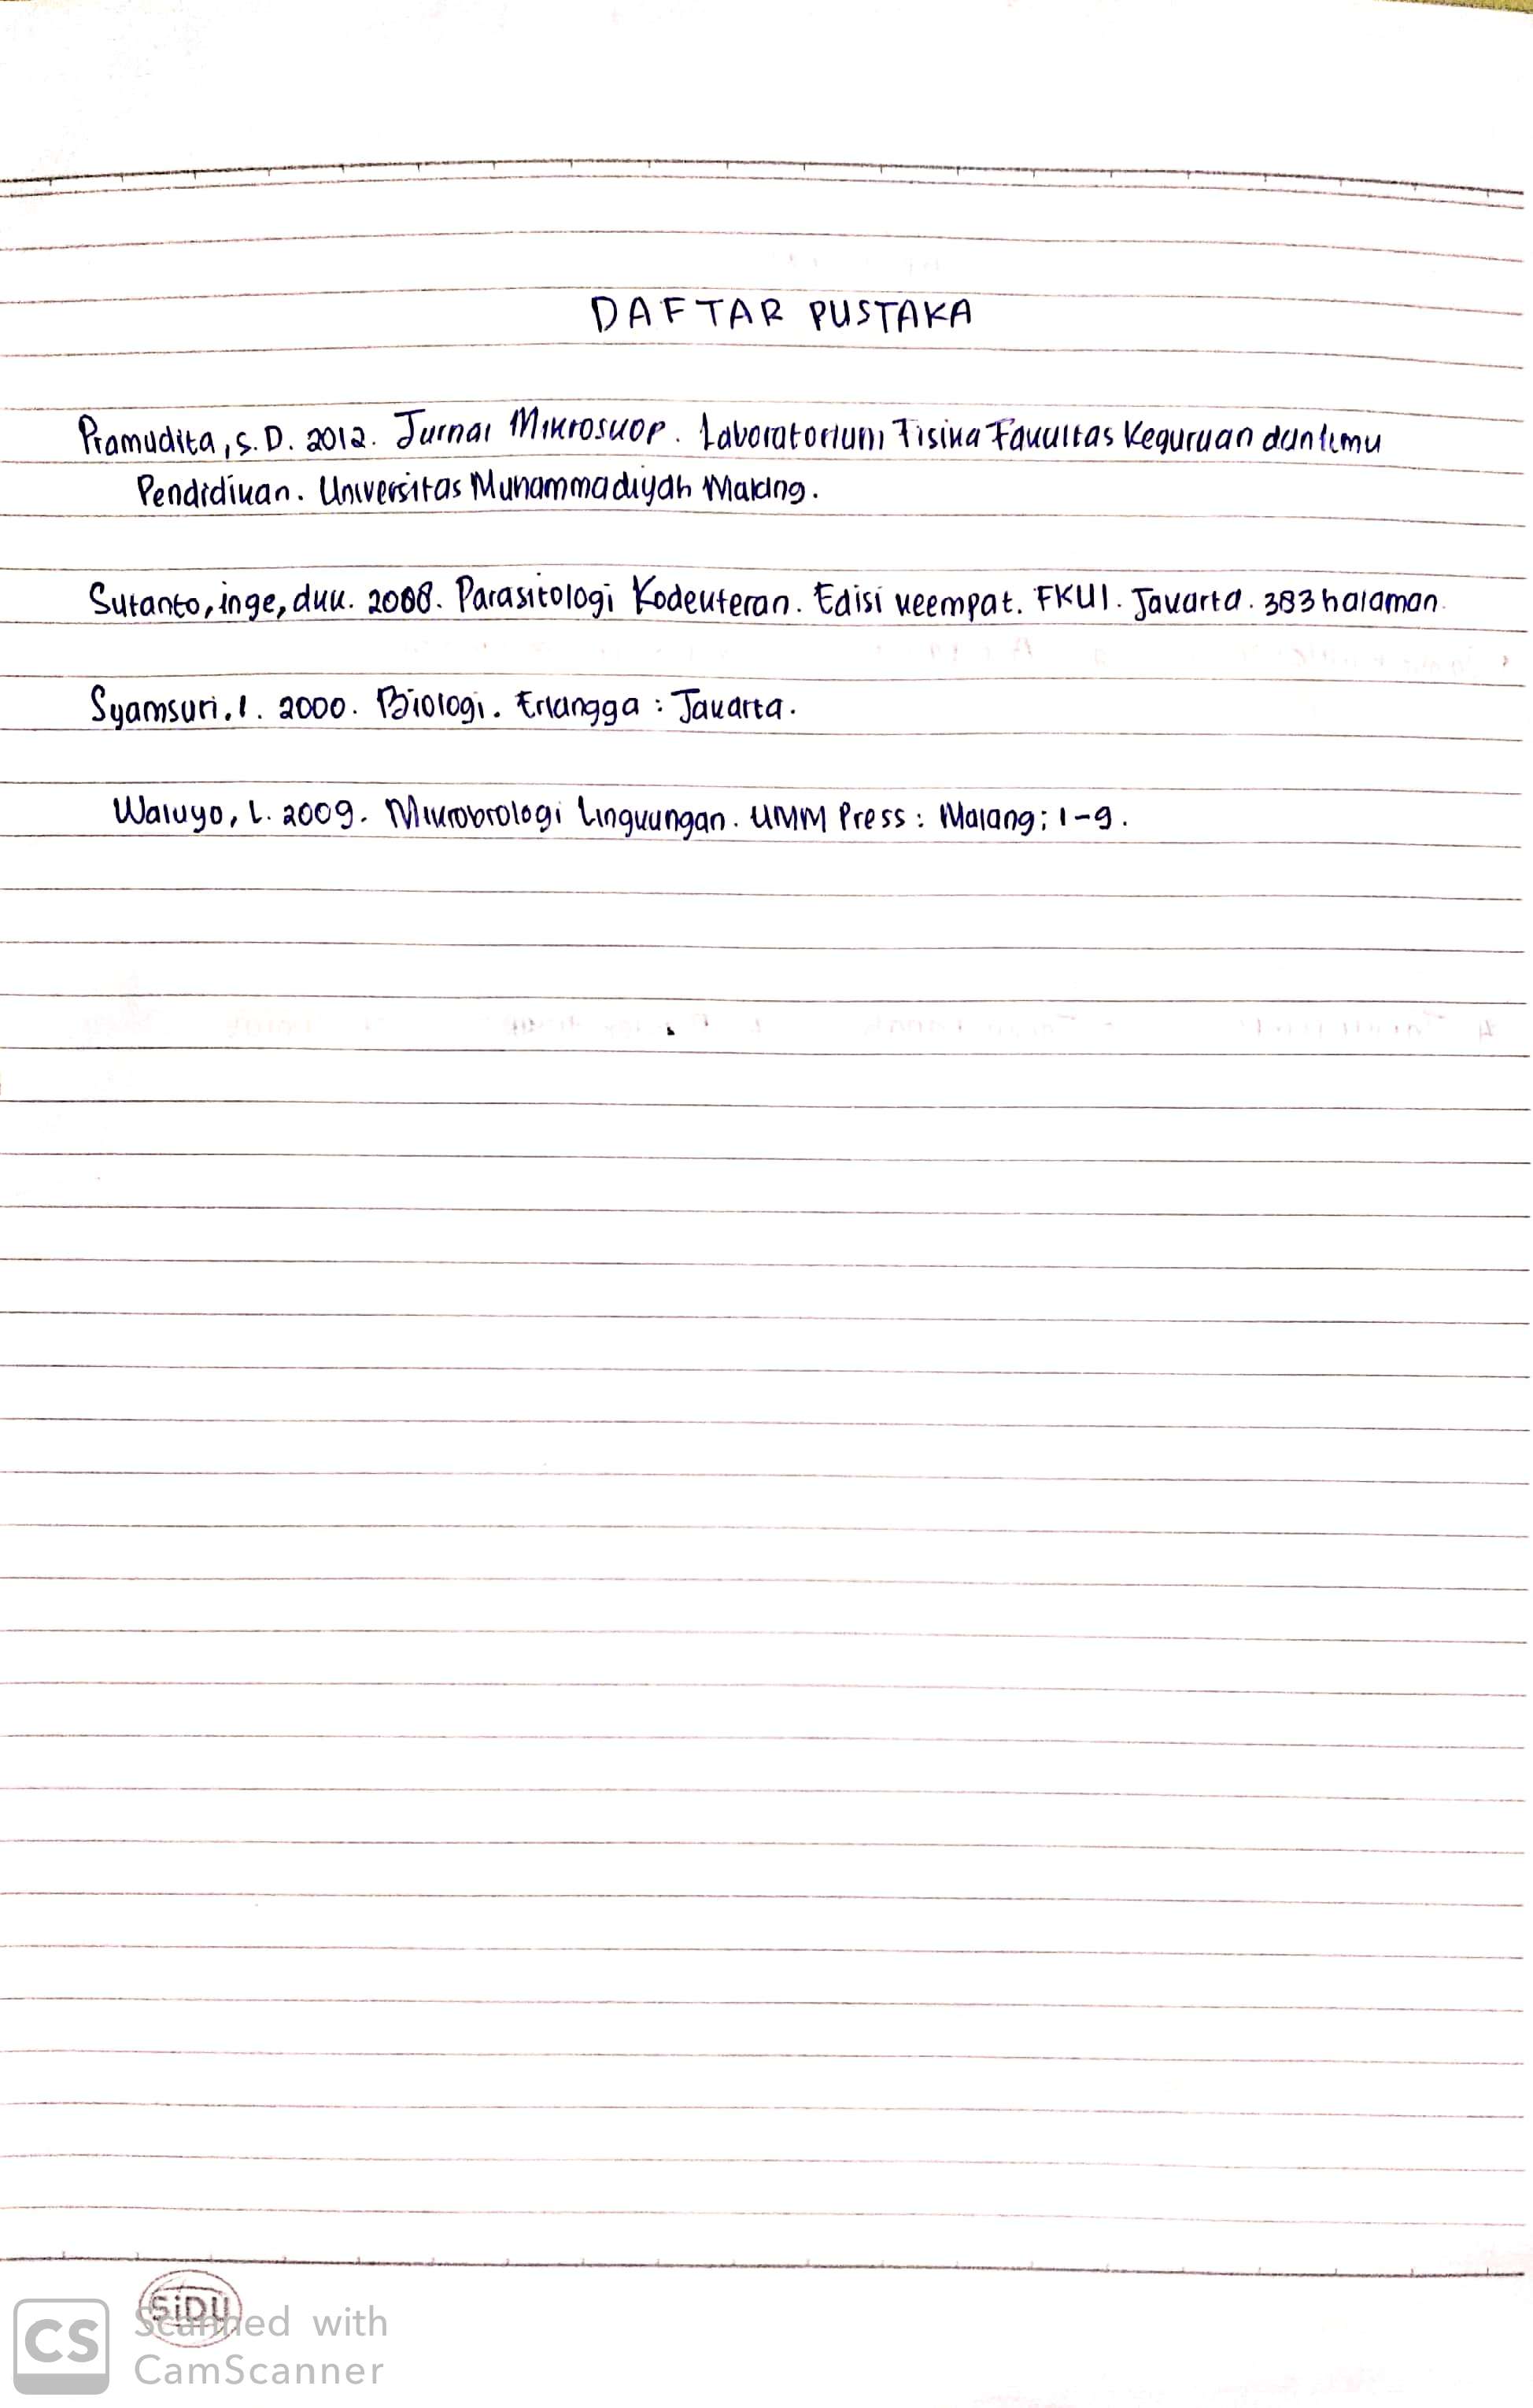 DAFTAR PUSTAKA
Pramudita, S. D. 2012. Jurnal Mikroskop. Laboratorium Fisika Fakultas Keguruan dan Ilmu
Pendidikan. Universitas Muhammadiyah Malang.
Sutanto, inge, dkk. 2008. Parasitologi Kodekteran. Edisi keempat. FKUI. Jakarta. 383 halaman.
Syamsuri. I. 2000. Biologi. Erlangga : Jakarta.
Waluyo, L. 2009. Mikrobiologi Lingkungan. UMM Press : Malang; 1-9.
SiDU
CS
Scanned with
CamScanner